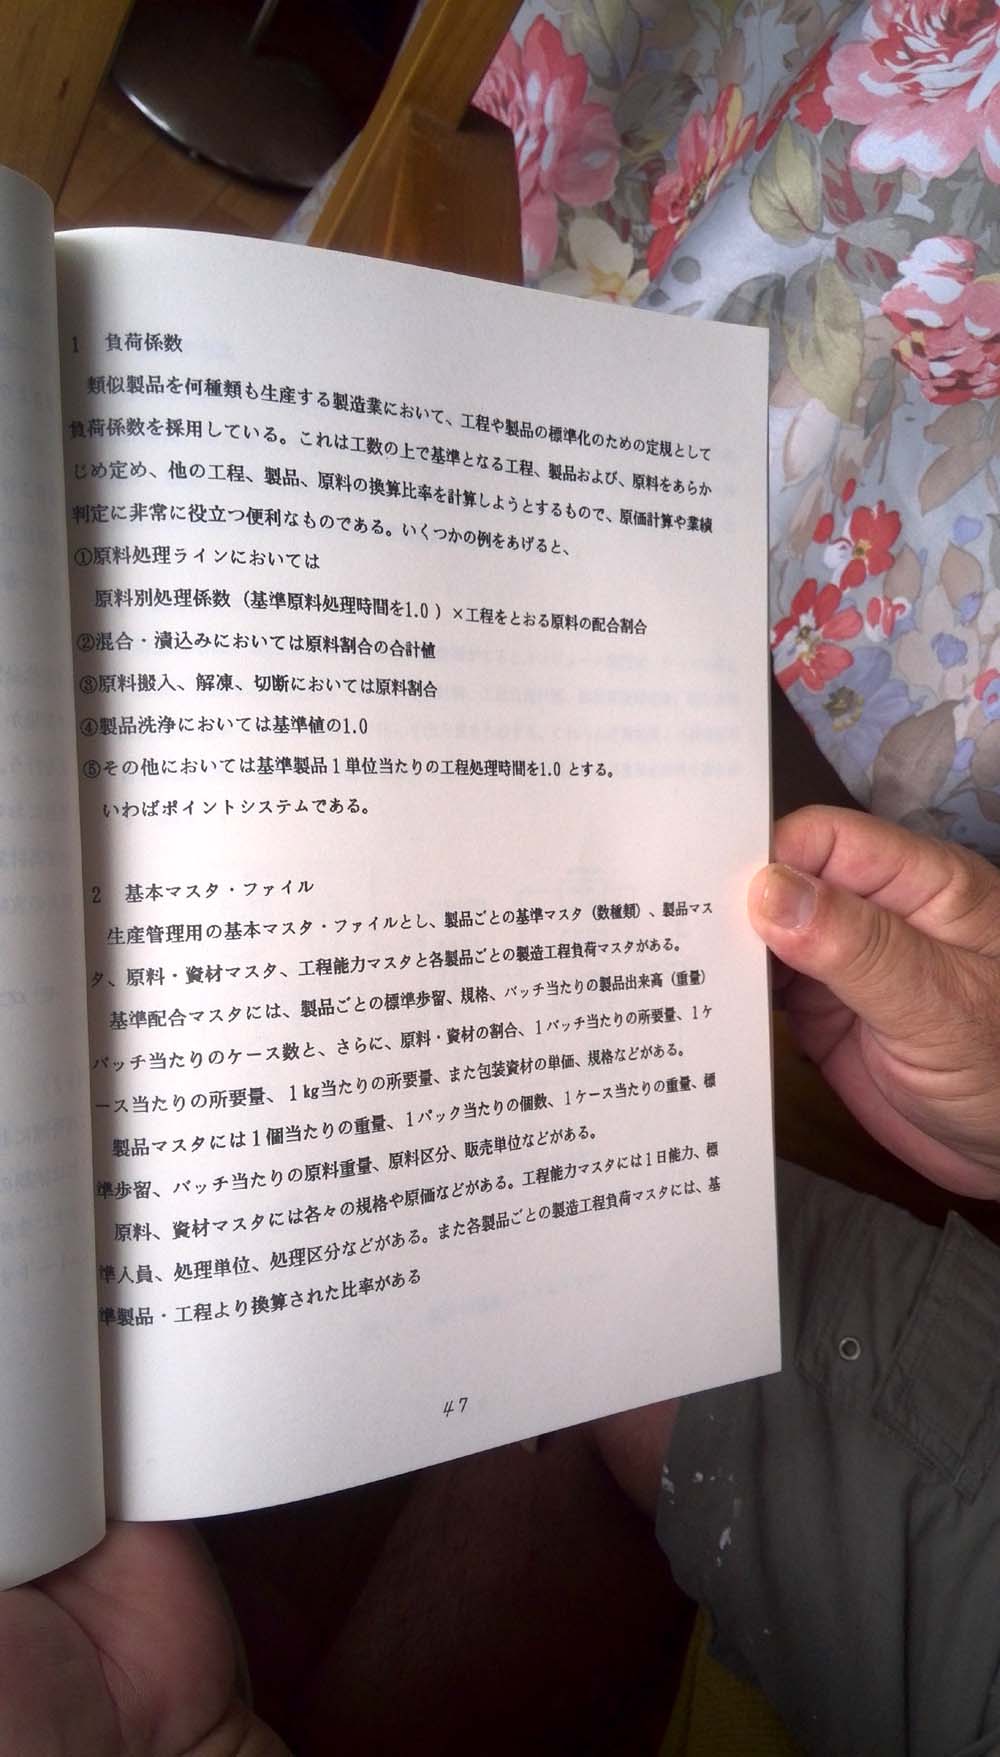 1 負荷係数
類似製品を何種類も生産する製造業において、工程や製品の標準化のための定規として
負荷係数を採用している。これは工数の上で基準となる工程、製品および、原料をあらか
じめ定め、他の工程、製品、原料の換算比率を計算しようとするもので、原価計算や業績
判定に非常に役立つ便利なものである。いくつかの例をあげると、
①原料処理ラインにおいては
原料別処理係数（基準原料処理時間を1.0）×工程をとおる原料の配合割合
②混合・漬込みにおいては原料割合の合計値
③原料搬入、解凍、切断においては原料割合
④製品洗浄においては基準値の1.0
⑤その他においては基準製品1単位当たりの工程処理時間を1.0とする。
いわばポイントシステムである。
2 基本マスタ・ファイル
生産管理用の基本マスタ・ファイルとし、製品ごとの基準マスタ（数種類）、製品マス
タ、原料・資材マスタ、工程能力マスタと各製品ごとの製造工程負荷マスタがある。
基準配合マスタには、製品ごとの標準歩留、規格、バッチ当たりの製品出来高（重量）
バッチ当たりのケース数と、さらに、原料・資材の割合、1バッチ当たりの所要量、1ケ
ース当たりの所要量、1kg当たりの所要量、また包装資材の単価、規格などがある。
製品マスタには1個当たりの重量、1パック当たりの個数、1ケース当たりの重量、標
準歩留、バッチ当たりの原料重量、原料区分、販売単位などがある。
原料、資材マスタには各々の規格や原価などがある。工程能力マスタには1日能力、標
準人員、処理単位、処理区分などがある。また各製品ごとの製造工程負荷マスタには、基
準製品・工程より換算された比率がある
47